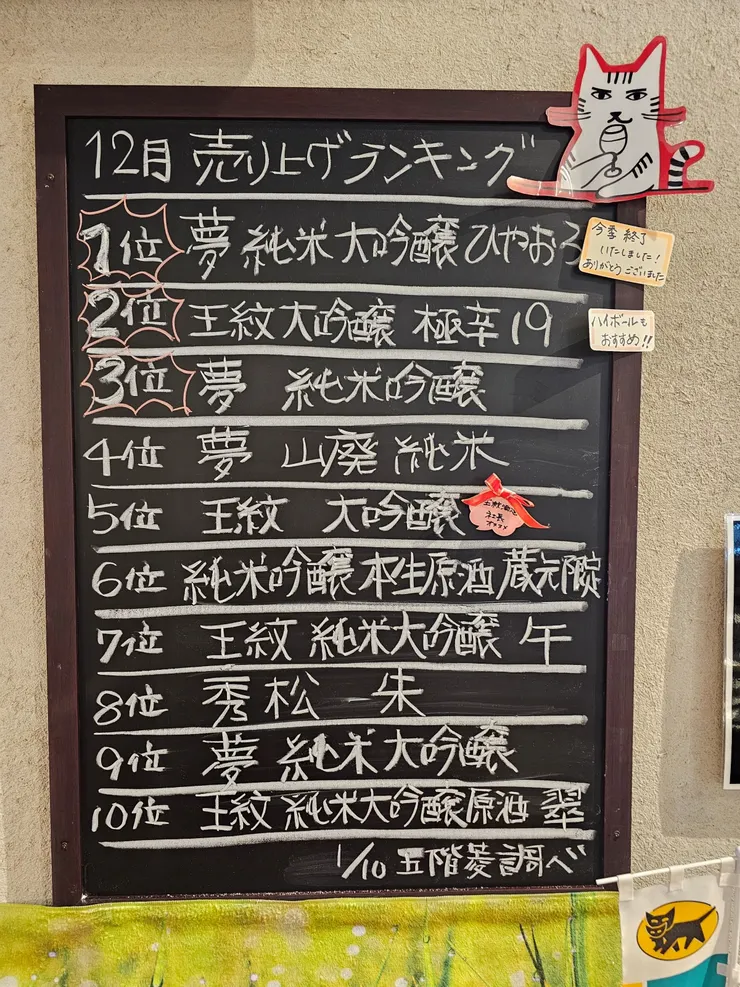 12月 売り上げランキング
1位 夢 純米 大吟醸 ひやおろ
今季 終了
いたしました!
ありがとうございました
2位 王紋 大吟醸 極辛19
ハイボールも
おすすめ!!
3位 夢 純米吟醸
4位 夢 山廃 純米
5位 王紋 大吟醸
社長
オススメ
6位 純米吟醸 本生原酒 蔵元限定
7位 王紋 純米大吟醸 午
8位 秀松 朱
9位 夢 純米大吟醸
10位 王紋 純米大吟醸原酒 翠
1/10 五階菱調べ